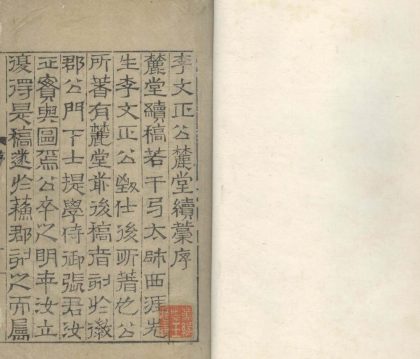 李文正公麓堂續藁序
麓堂續稿若干弓太師西涯先
生李文正公致仕後所著也公
所著有麓堂前後稿者刻於徽
郡公門下士提學侍御張君汝
立實與圖焉公卒之明年汝立
復得是稿遂於蘓郡刻之而屬